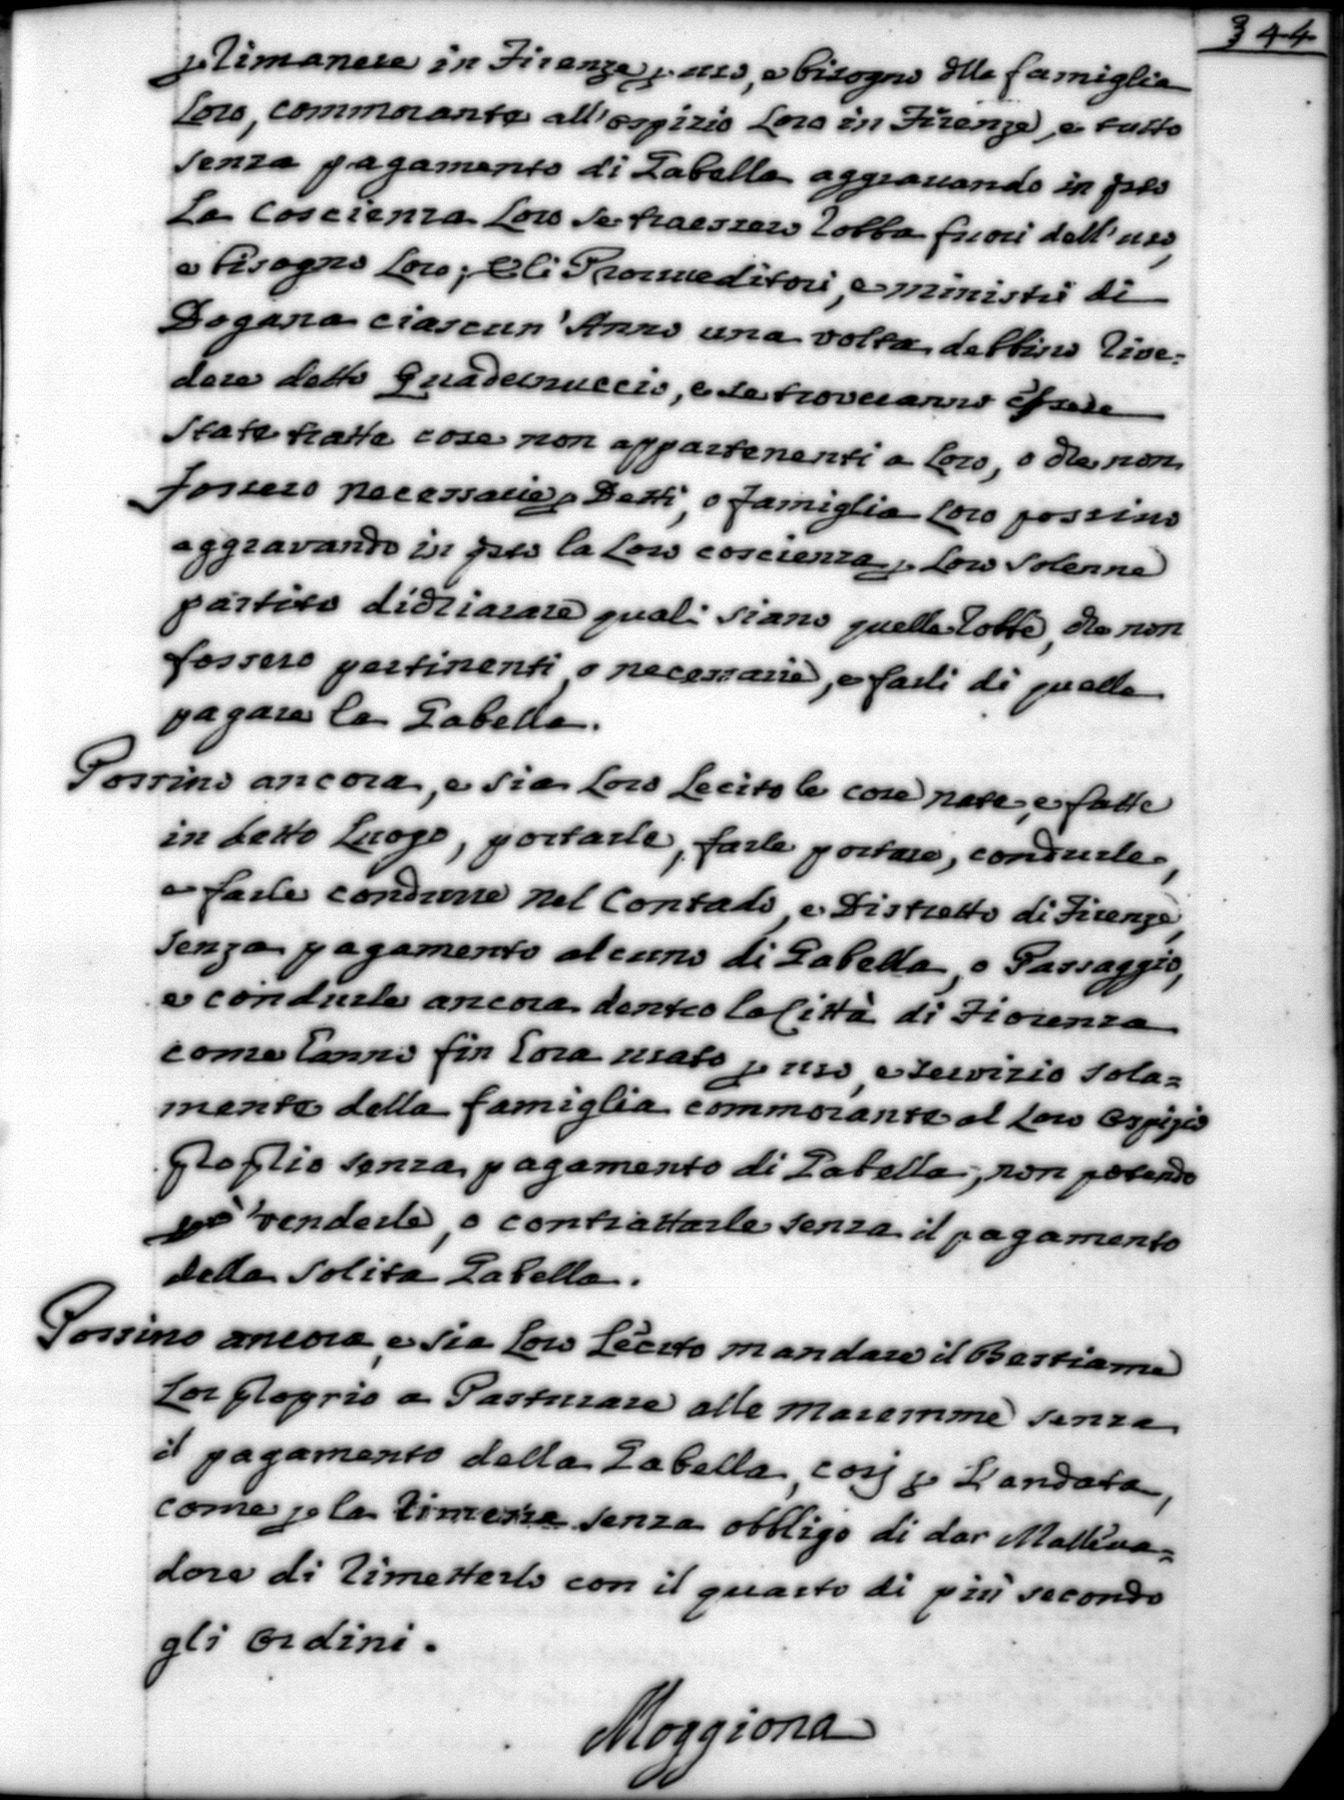 344
p rimanere in Firenze p uso, e bisogno dlla famiglia
Loro, commorante all'ospizio Loro in Firenze, e tutto
senza pagamento di Gabella aggravando in qsto
La Coscienza Loro se traessero robba fuori dell'uso,
e bisogno Loro; E li Provveditori, e ministri di
Dogana ciascun'Anno una volta debbino rive=
dere detto Quadernuccio, e se troveranno essere
state tratte cose non appartenenti a Loro, o che non
fossero necessarie p Detti, o famiglia Loro possino
aggravando in qsto la Loro coscienza p Loro solenne
partito dichiarare quali siano quelle robbe, che non
fossero pertinenti, o necessarie, e farli di quelle
pagare la Gabella.
Possino ancora, e sia Loro Lecito le cose nate, e fatte
in detto Luogo, portarle, farle portare, condurle,
e farle condurre nel Contado, e Distretto di Firenze,
senza pagamento alcuno di Gabella, o Passaggio,
e condurle ancora dentro la Città di Fiorenza
come hanno fin hora usato p uso, e servizio sola=
mente della famiglia commorante al Loro Ospizio
pprio senza pagamento di Gabella, non potendo
pò venderle, o contrattarle senza il pagamento
della solita Gabella.
Possino ancora, e sia Loro Lecito mandare il Bestiame
Lor proprio a Pasturare alle maremme senza
il pagamento della Gabella, così p L'andata,
come p la rimessa senza obbligo di dar Malleva=
dore di rimetterlo con il quarto di più secondo
gli Ordini.
Moggiona